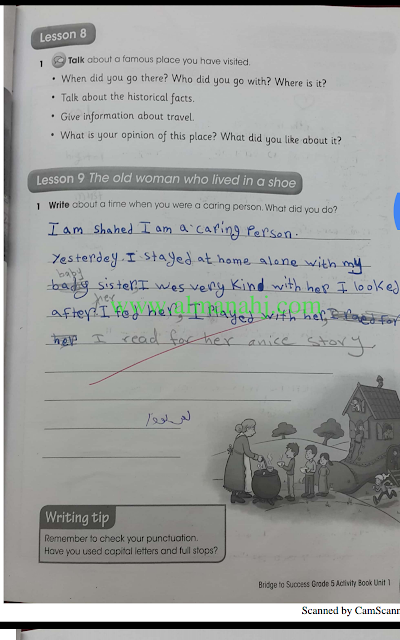 Lesson 8
1 Talk about a famous place you have visited.
• When did you go there? Who did you go with? Where is it?
• Talk about the historical facts.
• Give information about travel.
• What is your opinion of this place? What did you like about it?
Lesson 9 The old woman who lived in a shoe
1 Write about a time when you were a caring person. What did you do?
I am shahed I am a caring Person.
Yesterdey. I stayed at home alone with my
baby
bady sister I wes very kind with her I looked
her
after I fed her, I Played with her, I raed for
her I read for her a nice story
www.almanahj.com
Writing tip
Remember to check your punctuation.
Have you used capital letters and full stops?
Bridge to Success Grade 5 Activity Book Unit 1
Scanned by CamScann